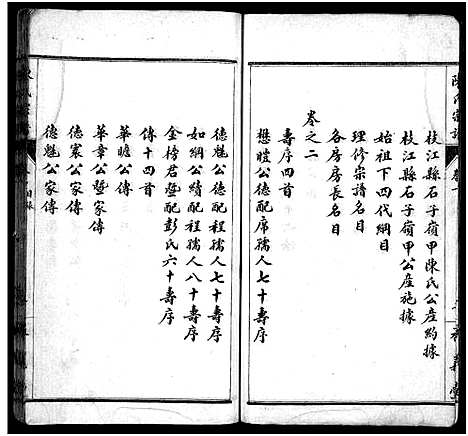 陳氏宗譜
枝江縣石子嶺甲陳氏公產約據
枝江縣石子嶺甲公產施據
始祖下四代綱目
理修宗譜名目
各房房長名目
卷之二
壽序四首
懋暟公德配席孺人七十壽序
德魁公德配程孺人七十壽序
如綱公績配程孺人八十壽序
金榜君暨配彭氏六十壽序
傳十四首
華瞻公傳
華章公暨家傳
德寰公家傳
德魁公家傳